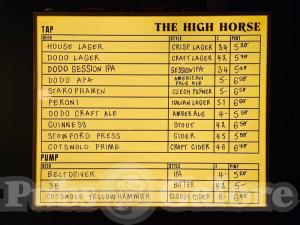 THE HIGH HORSE
TAP
BEER STYLE % PINT
HOUSE LAGER CRISP LAGER 3.4 5.20
DODO LAGER CRAFT LAGER 4.2 5.90
DODO SESSION IPA SESSION IPA 3.4 5.40
DODO APA AMERICAN PALE ALE 5- 6.50
STAROPRAMEN CZECH PILSNER 5-
PERONI ITALIAN LAGER 5.1 6.80
DODO CRAFT ALE AMBER ALE 4-
GUINNESS STOUT 4.2 6.50
STOWFORD PRESS CIDER 4.5
COTSWOLD PRIME CRAFT CIDER
PUMP
BEER STYLE % PINT
BELTDRIVER IPA 4-
3B BITTER 4.2 5-
COTSWOLD YELLOWHAMMER CLOUDY CIDER 6-
Pubs Galore